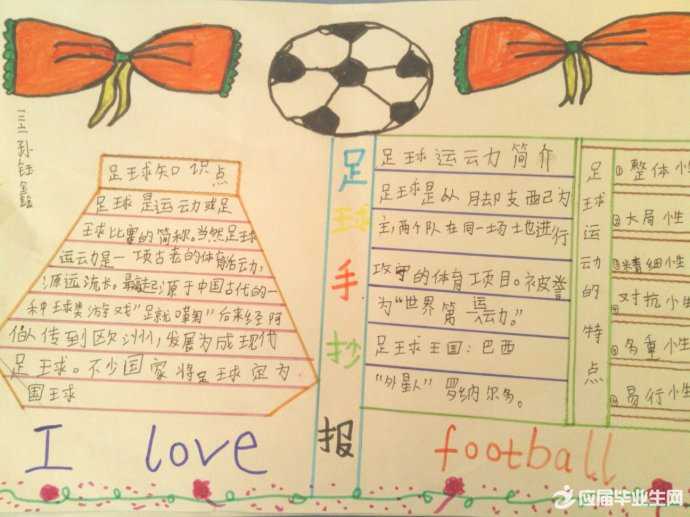 三(1) 孙钰鑫
足球知识点
足球是运动或足
球比赛的简称。当然足球
运动是一项古老的体育活动,
源远流长。最起源于中国古代的一
种球类游戏"足就
后来经阿
伯人传到欧洲,发展为成现代
足球。不少国家将足球定为
国球
足球手抄报
足球运动简介
足球是以用却支配己为
主,两个队在同一场土也进行
攻守的体育项目。被誉
为"世界第一运动。"
足球王国:巴西
"外星人"罗纳尔多。
足球运动的特点
①整体性
②大局性
③精细性
④对抗性
⑤多重性
⑥易行性
I love football
应届毕业生网